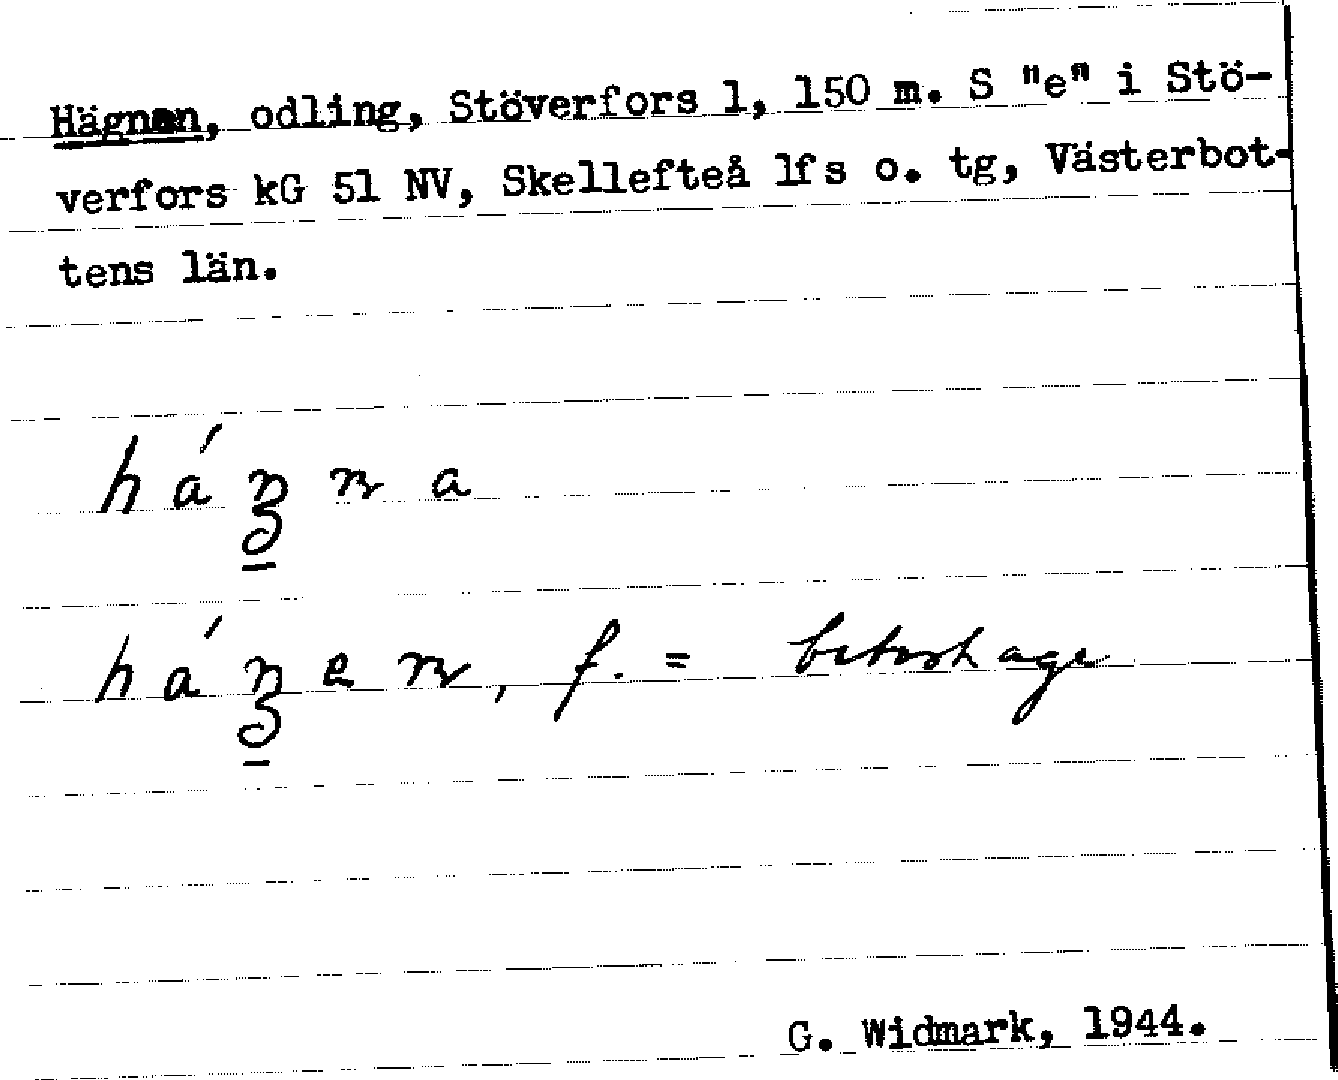 Hägnan, odling, Stöverfors 1, 150 m. S "e" i Stö-
verfors kG 51 NV, Skellefteå lfs o. tg, Västerbot-
tens län.
háŋna
háŋen, f. = beteshage
G. Widmark, 1944.